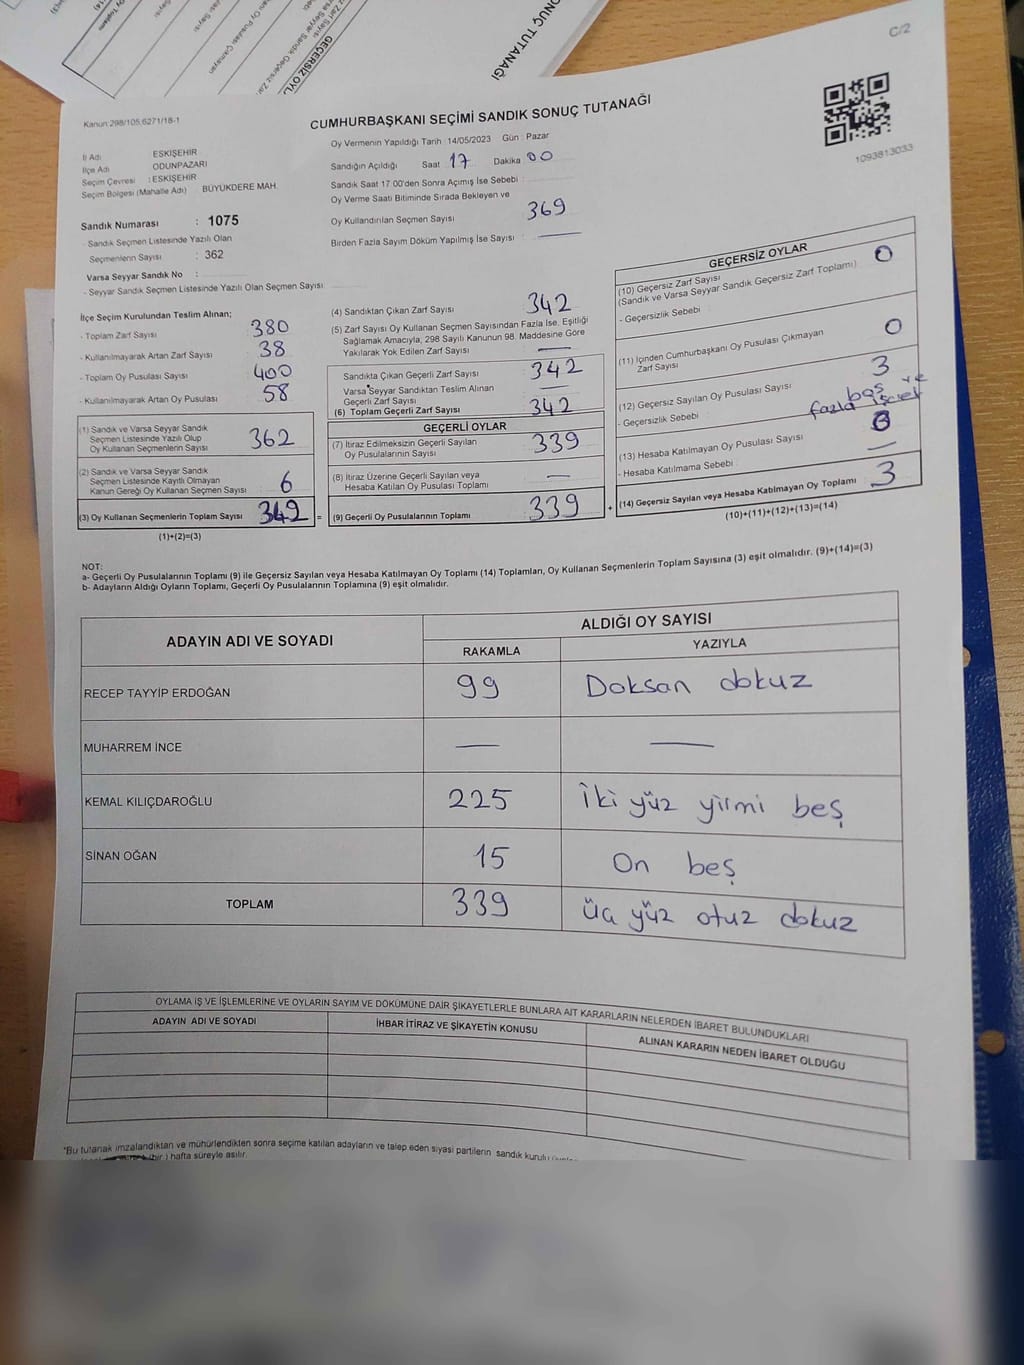 C/2
Kanun 298/105,6271/18-1
CUMHURBAŞKANI SEÇİMİ SANDIK SONUÇ TUTANAĞI
1093813033
İl Adı ESKİŞEHİR
İlçe Adı ODUNPAZARI
Seçim Çevresi : ESKİŞEHİR
Seçim Bölgesi (Mahalle Adı) BÜYÜKDERE MAH.
Sandık Numarası : 1075
- Sandık Seçmen Listesinde Yazılı Olan
Seçmenlerin Sayısı : 362
Varsa Seyyar Sandık No :
- Seyyar Sandık Seçmen Listesinde Yazılı Olan Seçmen Sayısı
Oy Vermenin Yapıldığı Tarih : 14/05/2023 Gün : Pazar
Sandığın Açıldığı Saat 17 Dakika 00
Sandık Saat 17 00'den Sonra Açımış İse Sebebi :
Oy Verme Saati Bitiminde Sırada Bekleyen ve
Oy Kullandırılan Seçmen Sayısı : 369
Birden Fazla Sayım Döküm Yapılmış İse Sayısı : —
İlçe Seçim Kurulundan Teslim Alınan;
- Toplam Zarf Sayısı 380
- Kullanılmayarak Artan Zarf Sayısı 38
- Toplam Oy Pusulası Sayısı 400
- Kullanılmayarak Artan Oy Pusulası 58
(1) Sandık ve Varsa Seyyar Sandık
Seçmen Listesinde Yazılı Olup
Oy Kullanan Seçmenlerin Sayısı 362
(2) Sandık ve Varsa Seyyar Sandık
Seçmen Listesinde Kayıtlı Olmayan
Kanun Gereği Oy Kullanan Seçmen Sayısı 6
(3) Oy Kullanan Seçmenlerin Toplam Sayısı 342 =
(1)+(2)=(3)
(4) Sandıktan Çıkan Zarf Sayısı 342
(5) Zarf Sayısı Oy Kullanan Seçmen Sayısından Fazla İse, Eşitliği
Sağlamak Amacıyla, 298 Sayılı Kanunun 98. Maddesine Göre
Yakılarak Yok Edilen Zarf Sayısı —
Sandıkta Çıkan Geçerli Zarf Sayısı 342
Varsa Seyyar Sandıktan Teslim Alınan
Geçerli Zarf Sayısı —
(6) Toplam Geçerli Zarf Sayısı 342
GEÇERLİ OYLAR
(7) İtiraz Edilmeksizin Geçerli Sayılan
Oy Pusulalarının Sayısı 339
(8) İtiraz Üzerine Geçerli Sayılan veya
Hesaba Katılan Oy Pusulası Toplamı —
(9) Geçerli Oy Pusulalarının Toplamı 339 +
GEÇERSİZ OYLAR
(10) Geçersiz Zarf Sayısı 0
(Sandık ve Varsa Seyyar Sandık Geçersiz Zarf Toplamı)
- Geçersizlik Sebebi :
(11) İçinden Cumhurbaşkanı Oy Pusulası Çıkmayan 0
Zarf Sayısı
(12) Geçersiz Sayılan Oy Pusulası Sayısı 3
- Geçersizlik Sebebi : boş ve
fazla işaret
(13) Hesaba Katılmayan Oy Pusulası Sayısı 0
- Hesaba Katılmama Sebebi : —
(14) Geçersiz Sayılan veya Hesaba Katılmayan Oy Toplamı 3
(10)+(11)+(12)+(13)=(14)
NOT:
a- Geçerli Oy Pusulalarının Toplamı (9) ile Geçersiz Sayılan veya Hesaba Katılmayan Oy Toplamı (14) Toplamları, Oy Kullanan Seçmenlerin Toplam Sayısına (3) eşit olmalıdır. (9)+(14)=(3)
b- Adayların Aldığı Oyların Toplamı, Geçerli Oy Pusulalarının Toplamına (9) eşit olmalıdır.
ADAYIN ADI VE SOYADI ALDIĞI OY SAYISI
RAKAMLA YAZIYLA
RECEP TAYYİP ERDOĞAN 99 Doksan dokuz
MUHARREM İNCE — —
KEMAL KILIÇDAROĞLU 225 İki yüz yirmi beş
SİNAN OĞAN 15 On beş
TOPLAM 339 üç yüz otuz dokuz
OYLAMA İŞ VE İŞLEMLERİNE VE OYLARIN SAYIM VE DÖKÜMÜNE DAİR ŞİKAYETLERLE BUNLARA AİT KARARLARIN NELERDEN İBARET BULUNDUKLARI
ADAYIN ADI VE SOYADI İHBAR İTİRAZ VE ŞİKAYETİN KONUSU ALINAN KARARIN NEDEN İBARET OLDUĞU
*Bu tutanak imzalandıktan ve mühürlendikten sonra seçime katılan adayların ve talep eden siyasi partilerin sandık kurulu
(bir ) hafta süreyle asılır.